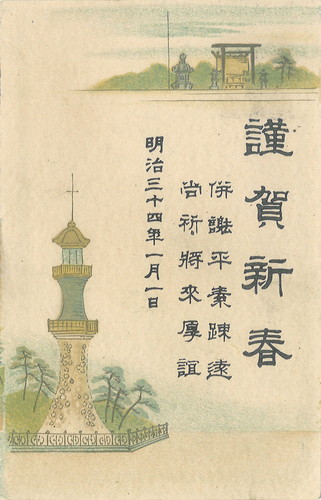 謹賀新春
併謝平素疎遠
尚祈將来厚誼
明治三十四年一月一日